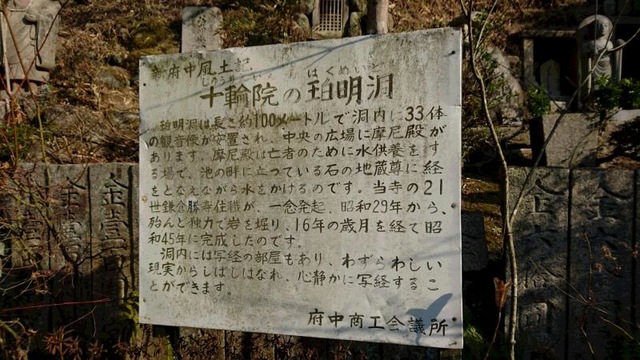 府中風土記
じゅうりんいん はくめいどう
十輪院の珀明洞
珀明洞は長さ約100メートルで洞内に33体
の観音像が安置され、中央の広場に摩尼殿が
あります。摩尼殿は亡者のために水供養をす
る場で、池の畔に立っている石の地蔵尊に経
をとなえながら水をかけるのです。当寺の21
世鎌倉勝寿住職が、一念発起、昭和29年から、
殆んど独力で岩を堀り、16年の歳月を経て昭
和45年に完成したのです。
洞内には写経の部屋もあり、わずらわしい
現実からしばしはなれ、心静かに写経するこ
とができます。
府中商工会議所